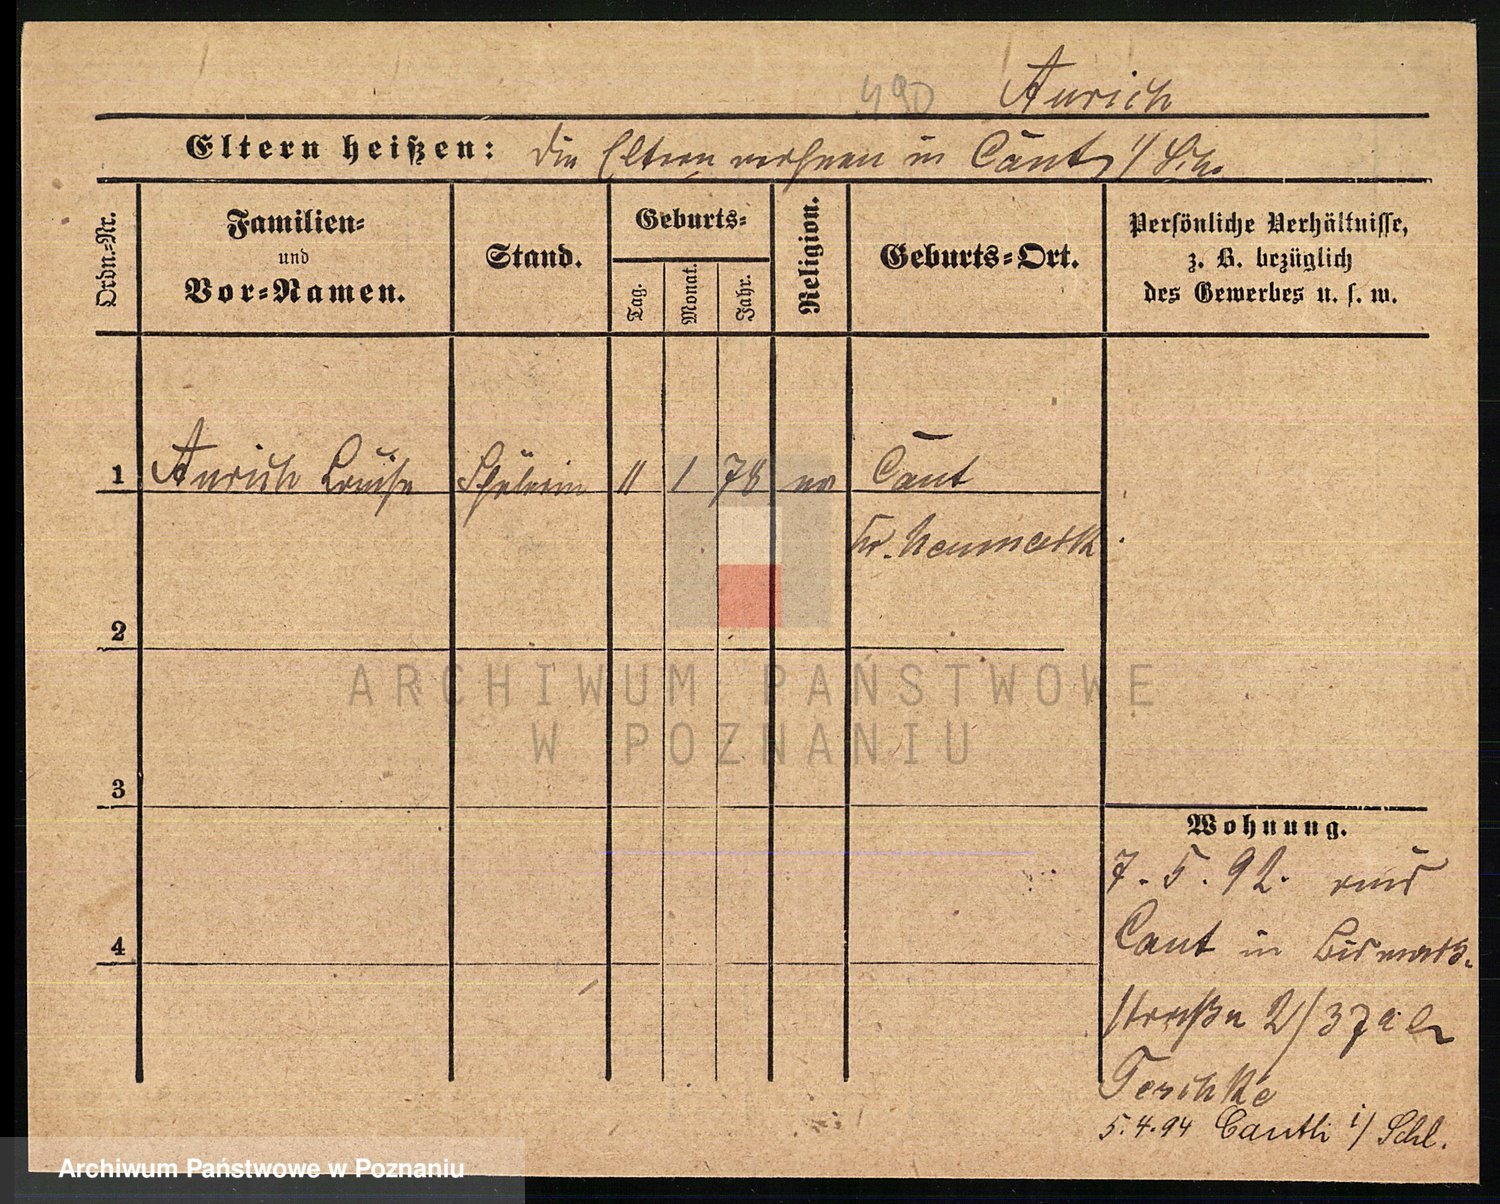 490 Aurich
Eltern heißen: Die Eltern wohnen in Cant i/ Sch.
Ordn.=Nr.
Familien=
und
Vor=Namen.
Stand.
Geburts=
Tag.
Monat.
Jahr.
Religion.
Geburts=Ort.
Persönliche Verhältnisse,
z. B. bezüglich
des Gewerbes u. s. w.
1 Aurich Louise Schülerin 11 1 78 ev Cant
Kr. Neumarkt
2
3
4
Wohnung.
7. 5. 92. aus
Cant in Bismark.
straße 2/3 
Teschke
5.4.94 Canth i/ Schl.
ARCHIWUM PAŃSTWOWE
W POZNANIU
Archiwum Państwowe w Poznaniu